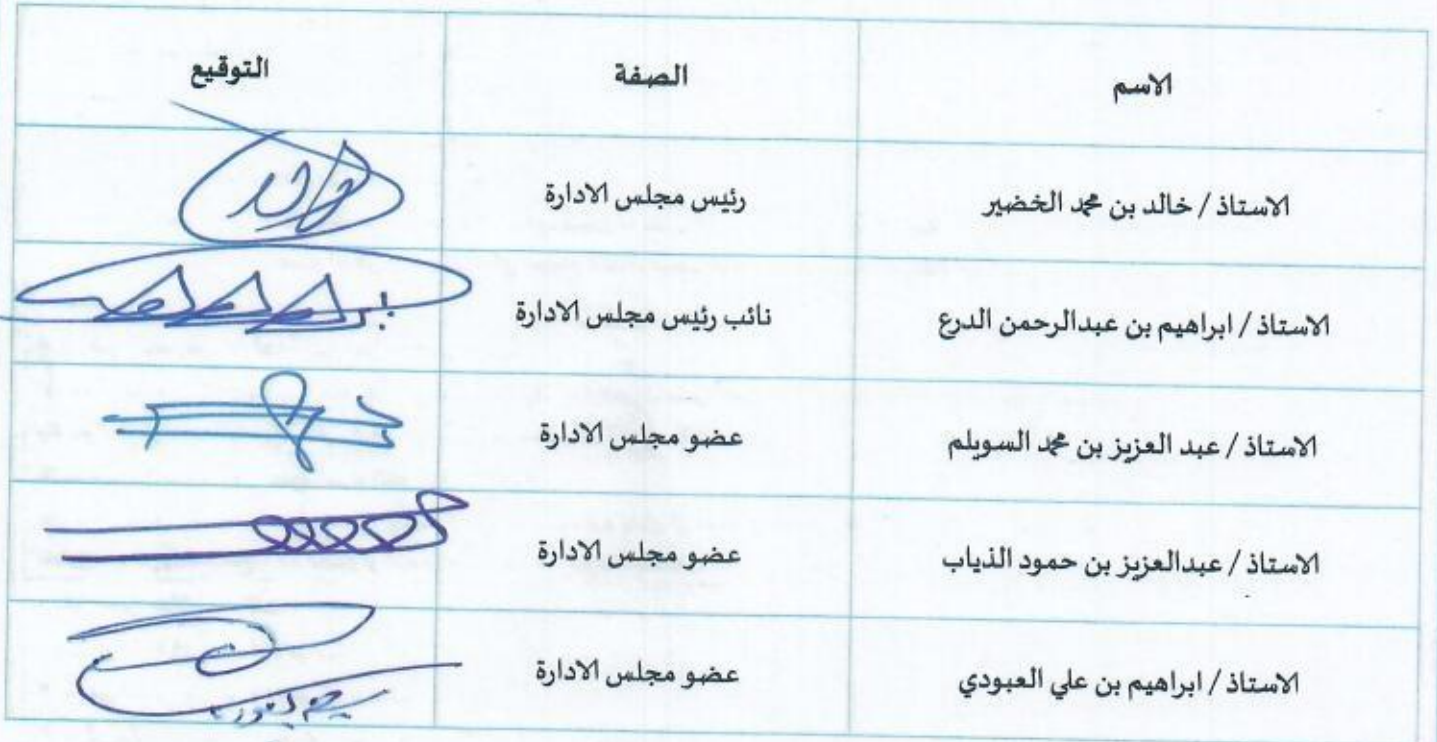 الاسم الصفة التوقيع
الاستاذ / خالد بن محمد الخضير رئيس مجلس الادارة
الاستاذ / ابراهيم بن عبدالرحمن الدرع نائب رئيس مجلس الادارة
الاستاذ / عبد العزيز بن محمد السويلم عضو مجلس الادارة
الاستاذ / عبدالعزيز بن حمود الذياب عضو مجلس الادارة
الاستاذ / ابراهيم بن علي العبودي عضو مجلس الادارة